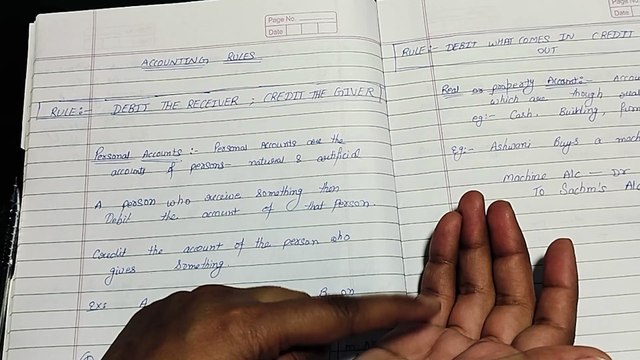 Page No.
Date
ACCOUNTING RULES
RULE:- DEBIT THE RECEIVER ; CREDIT THE GIVER
Personal Accounts :- Personal Accounts are the
accounts of persons - natural & artificial
A person who receive something then
Debit the account of that person.
Credit the account of the person who
gives something.
Ex:- A B on
Page No
Date
RULE:- DEBIT WHAT COMES IN CREDIT
OUT
Real or property Account:- Accou
which are though
eg:- Cash, Building, furn
Eg:- Ashwani Buys a mach
Machine A/c - Dr
To Sachin's A/c